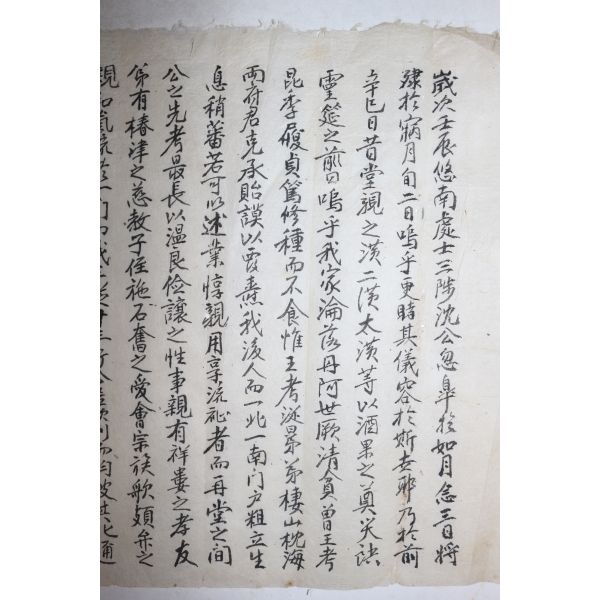 歲次壬辰悠南處士三陟沈公忽皐於如月念三日將
肂於寎月旬二日嗚乎更賭其儀容於斯世耶乃於前
辛巳日昔堂親之潢二潢太潢等以酒果之奠哭訣
靈筵之前曰嗚乎我家淪落丹阿世厥清貧曾王考
昆季履貞篤修種而不食惟王考逊昴弟棲山枕海
兩府君克承貽謨以覃燾我後人而一北一南門戶粗立生
息稍蕃若可以述業惇親用享流祉者而再堂之間
公之先考最長以溫良儉讓之性事親有祥婁之孝友
弟有椿津之慈教子侄施石奮之愛會宗族歌頍弁之
親和氣